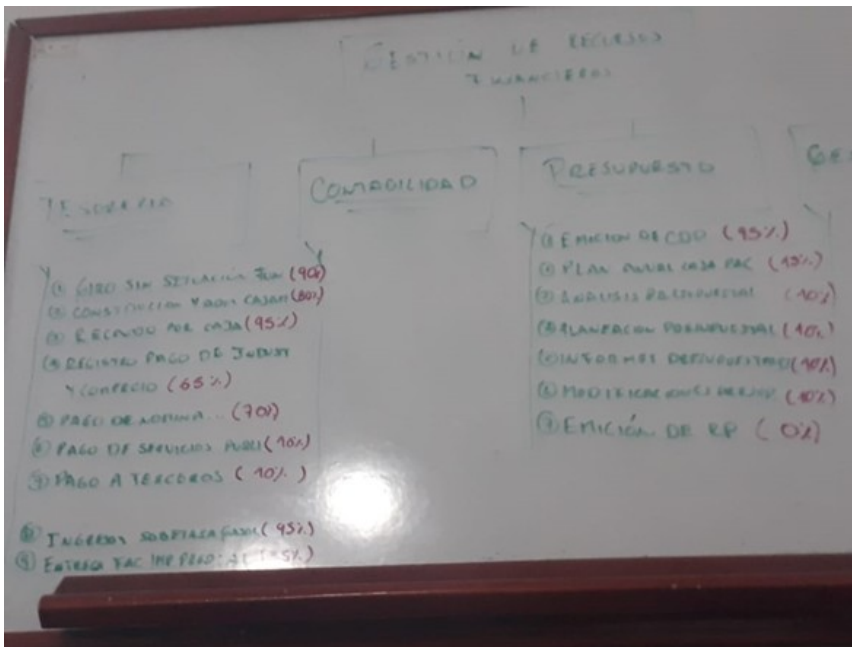 GESTIÓN DE RECURSOS
FINANCIEROS
TESORERIA
① GIRO SIN SITUACIÓN (90%)
② CONSTITUCION Y ADM CAJAM (80%)
③ RECAUDO POR CAJA (95%)
④ REGISTRO PAGO DE INDUST
Y COMERCIO (65%)
⑤ PAGO DE NOMINA... (70%)
⑥ PAGO DE SERVICIOS PUBLI (10%)
⑦ PAGO A TERCEROS (10%)
⑧ INGRESOS SOBRETASA GASOL (95%)
⑨ ENTREGA FAC IMP PREDIAL
CONTABILIDAD
PRESUPUESTO
① EMICION DE CDP (95%)
② PLAN ANUAL CAJA PAC (15%)
③ ANALISIS PRESUPUESTAL (10%)
④ PLANEACION PRESUPUESTAL (10%)
⑤ INFORMES PRESUPUESTAL (10%)
⑥ MODIFICACIONES PRESUP (10%)
⑦ EMICIÓN DE RP (0%)
GES